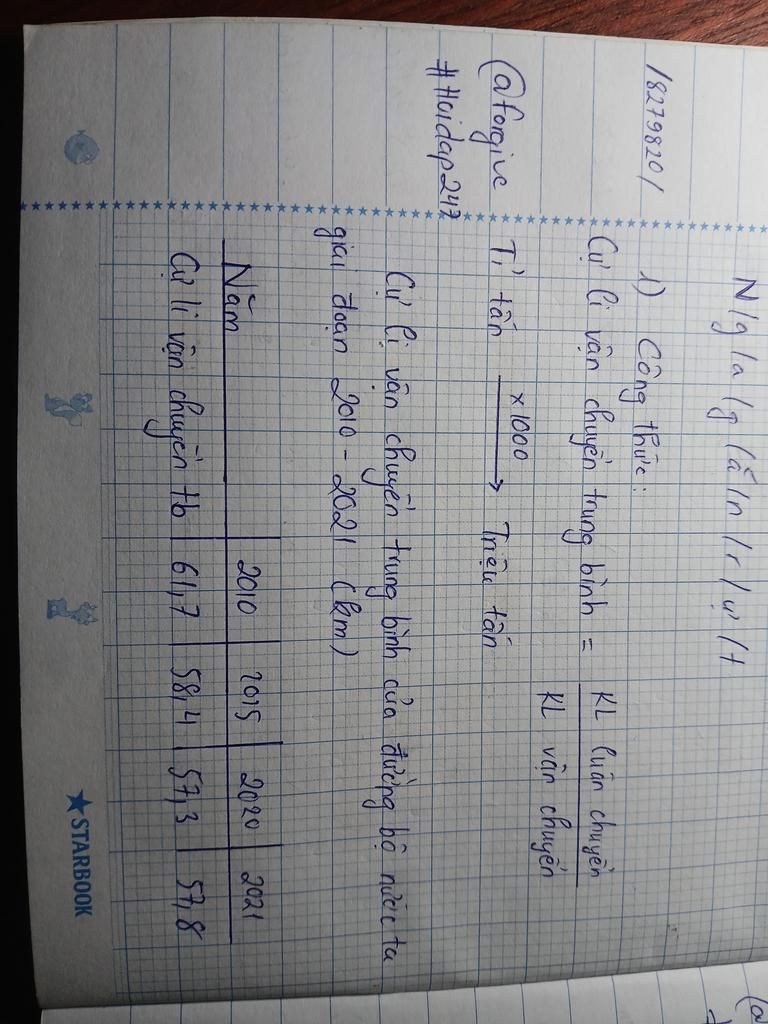 N/g/a/g/ấ/n/r/ự/t
/8279820/
1) Công thức:
Cự li vận chuyển trung bình = KL luân chuyển
KL vận chuyển
@forgive
#Hoidap247
Tỉ tấn ×1000 → Triệu tấn
Cự li vận chuyển trung bình của đường bộ nước ta
giai đoạn 2010 - 2021 (km)
Năm 2010 2015 2020 2021
Cự li vận chuyển tb 61,7 58,4 57,3 57,8
★ STARBOOK